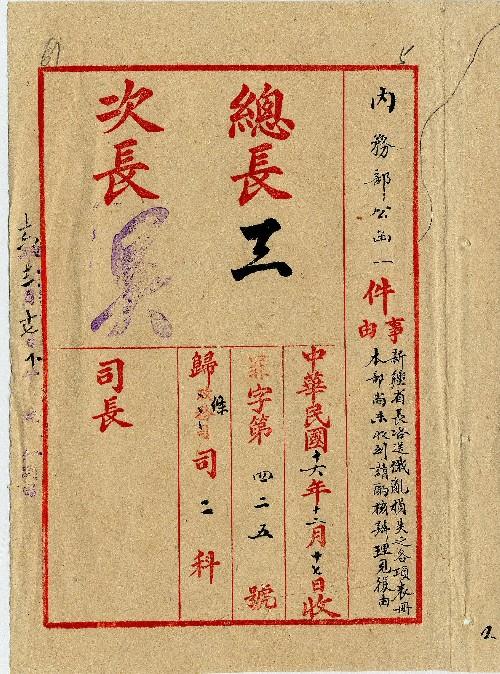 5
内務部公函一件
事由
新疆省長咨送俄亂損失之各項表冊
本部尚未收到請酌核辦理見復由
總長
王
次長
吴
中華民國十六年十二月十七日收
字第四二五號
歸條約司二科
司長
2.